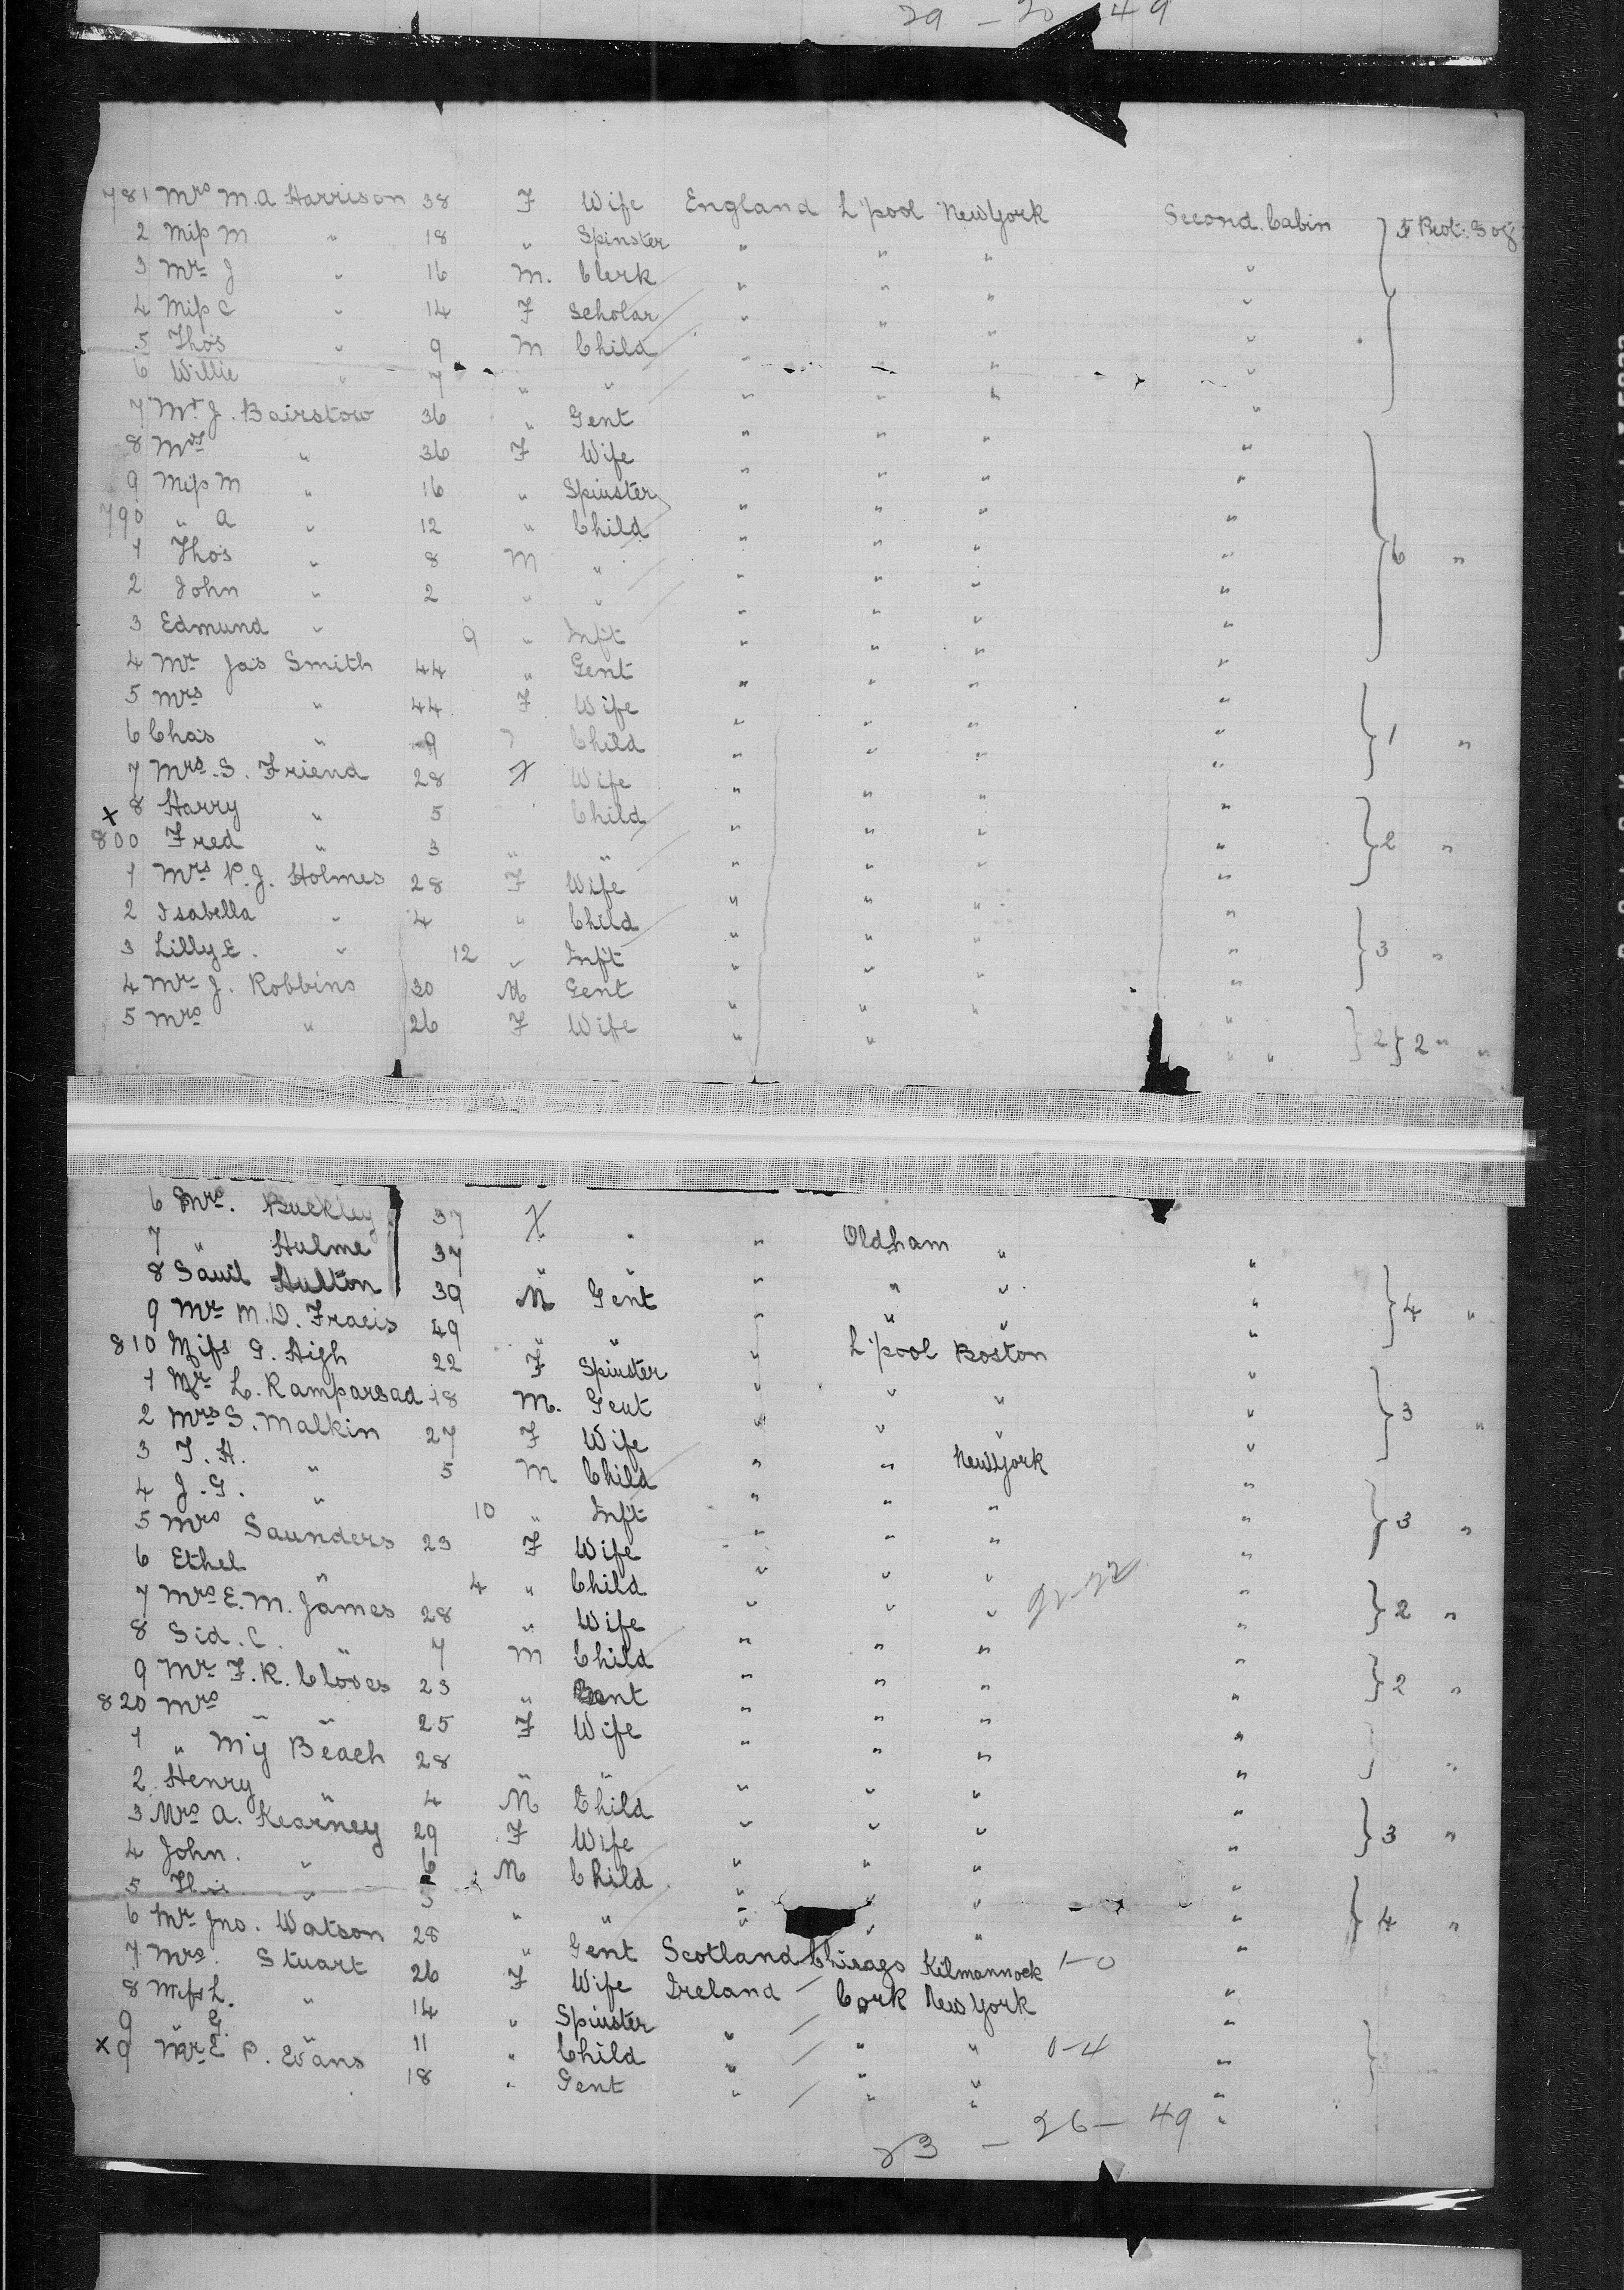 29 - 20 49
781 Mrs M.A Harrison 38 F Wife England L'pool New York Second Cabin
2 Miss M " 18 " Spinster " " " "
3 Mr J " 16 M. Clerk " " " "
4 Miss C " 14 F Scholar " " " "
5 Thos " 9 M Child " " " "
6 Willie " 7 " " " " " "
7 Mr J. Bairstow 36 " Gent " " " "
8 Mrs " 36 F Wife " " " "
9 Miss M " 16 " Spinster " " " "
790 " A " 12 " Child " " " "
1 Thos " 8 M " " " " " } 6 "
2 John " 2 " " " " " "
3 Edmund " 9 " Inft " " " "
4 Mr Jas Smith 44 " Gent " " " "
5 Mrs " 44 F Wife " " " "
6 Chas " 9 Child " " " " } 1 "
7 Mrs. S. Friend 28 F Wife " " " "
x 8 Harry " 5 Child " " " "
800 Fred " 3 " " " " " " } 2 "
1 Mrs P.J. Holmes 28 F Wife " " " "
2 Isabella " 4 " Child " " " "
3 Lilly E. " 12 " Inft " " " " } 3 "
4 Mr J. Robbins 30 M Gent " " " "
5 Mrs " 26 F Wife " " " " } 2 } 2 " "
6 Mrs. Buckley 37 F " " Oldham " "
7 " Hulme 37 " " " " " "
8 Hulton 39 M Gent " " " " } 4 "
9 Mr M.D. 49 " " " L'pool Boston "
810 Miss G. High 22 F Spinster " " " "
1 Mr L. Ramparsad 18 M. Gent " " " " } 3 "
2 Mrs S. Malkin 27 F Wife " " New York "
3 T. H. " 5 M Child " " " "
4 J. G. " 10 " Inft " " " " } 3 "
5 Mrs Saunders 23 F Wife " " " "
6 Ethel " 4 " Child " " " " } 2 "
7 Mrs E.M. James 28 " Wife " " " "
8 Sid. C. " 7 M Child " " " " } 2 "
9 Mr F.R. Cloves 23 " Gent " " " "
820 Mrs " " 25 F Wife " " " "
1 " Beach 28 " " " " " "
2 Henry " 4 M Child " " " " } 3 "
3 Mrs A. Kearney 29 F Wife " " " "
4 John. " 6 M Child " " " "
5 " 5 " " " " " " } 4 "
6 Mr Jno. Watson 28 " Gent Scotland Chicago Kilmannock 1-0 "
7 Mrs. Stuart 26 F Wife Ireland Cork New York "
8 Miss L. " 14 " Spinster " " " "
9 " G. " 11 " Child " " " 0-4 "
x 9 Mr E P. Evans 18 " Gent " " " "
83 - 26 - 49